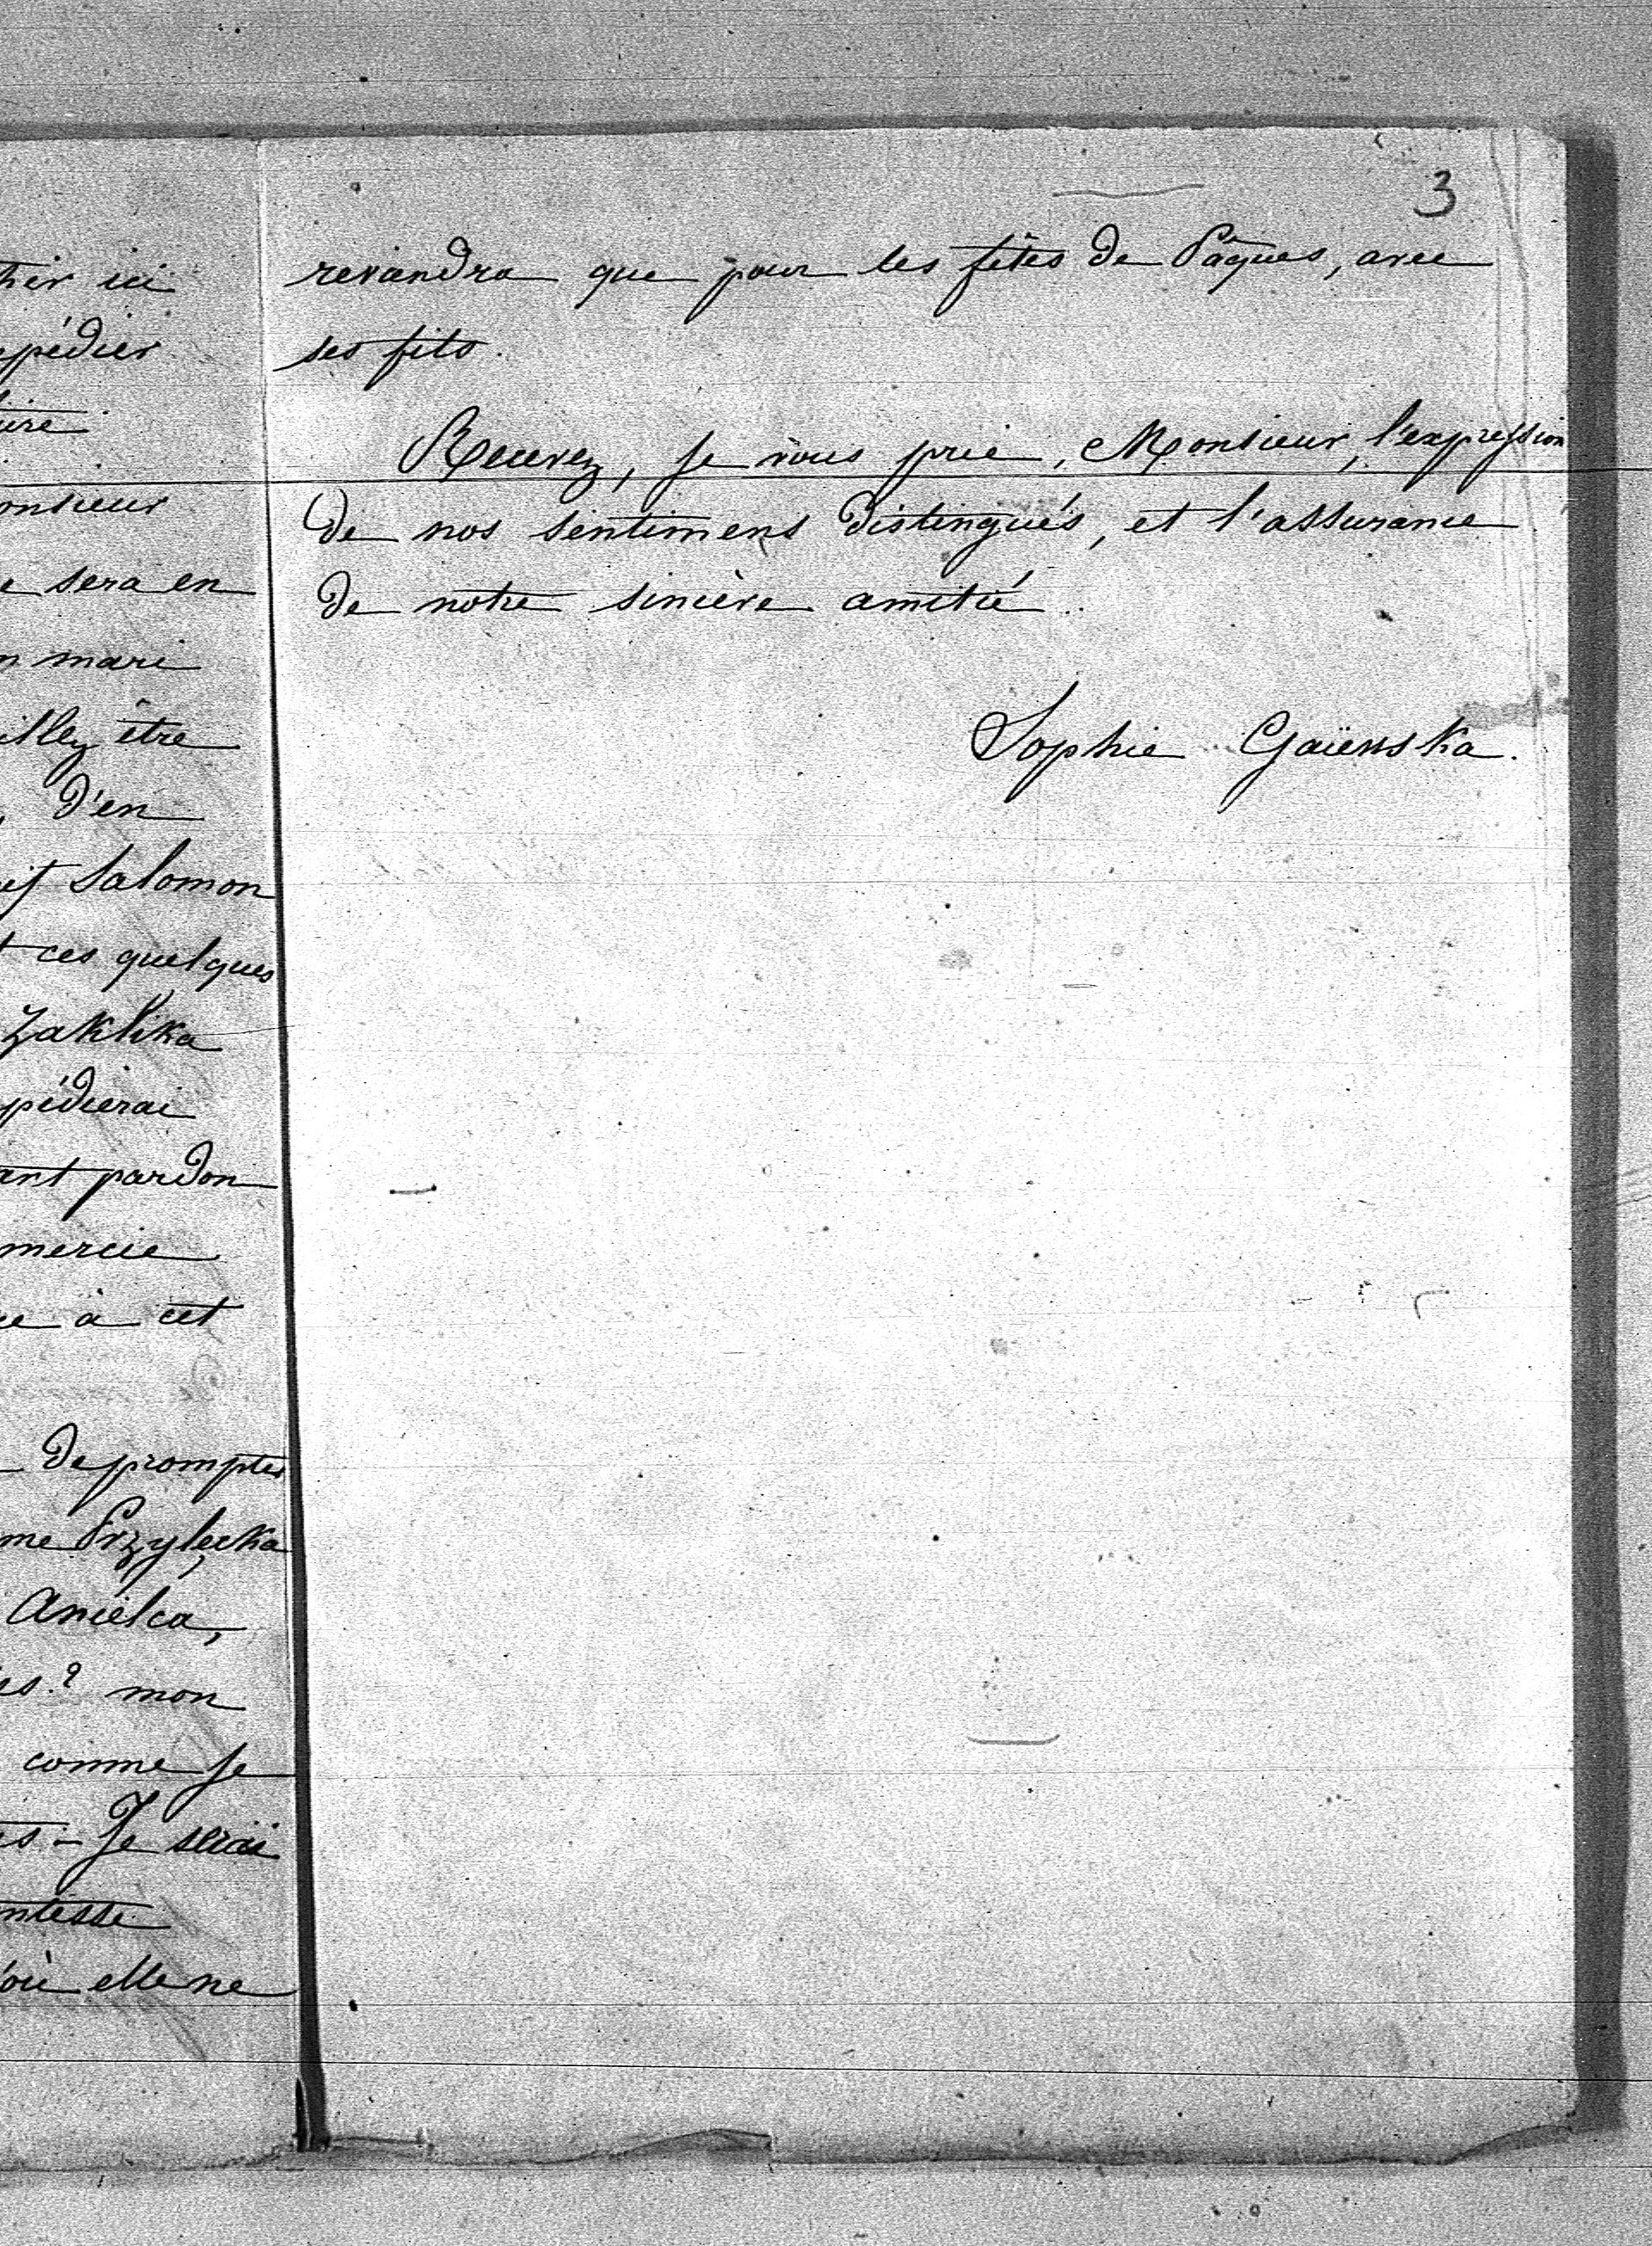 ici
pédier
onsieur
sera en
mari
illez être
d'en
Salomon
ces quelques
Zaklika
pédierai
ant pardon
mercie
à cet
de promptes
me Przyłęcka
Anielca,
es? mon
comme je
Je serai
ntesse
où elle ne
3
revandra que pour les fêtes de Pâques, avec
ses fils.
Recevez, je vous prie, Monsieur, l'expression
de nos sentimens distingués, et l'assurance
de notre sincère amitié.
Sophie Gaïewska.